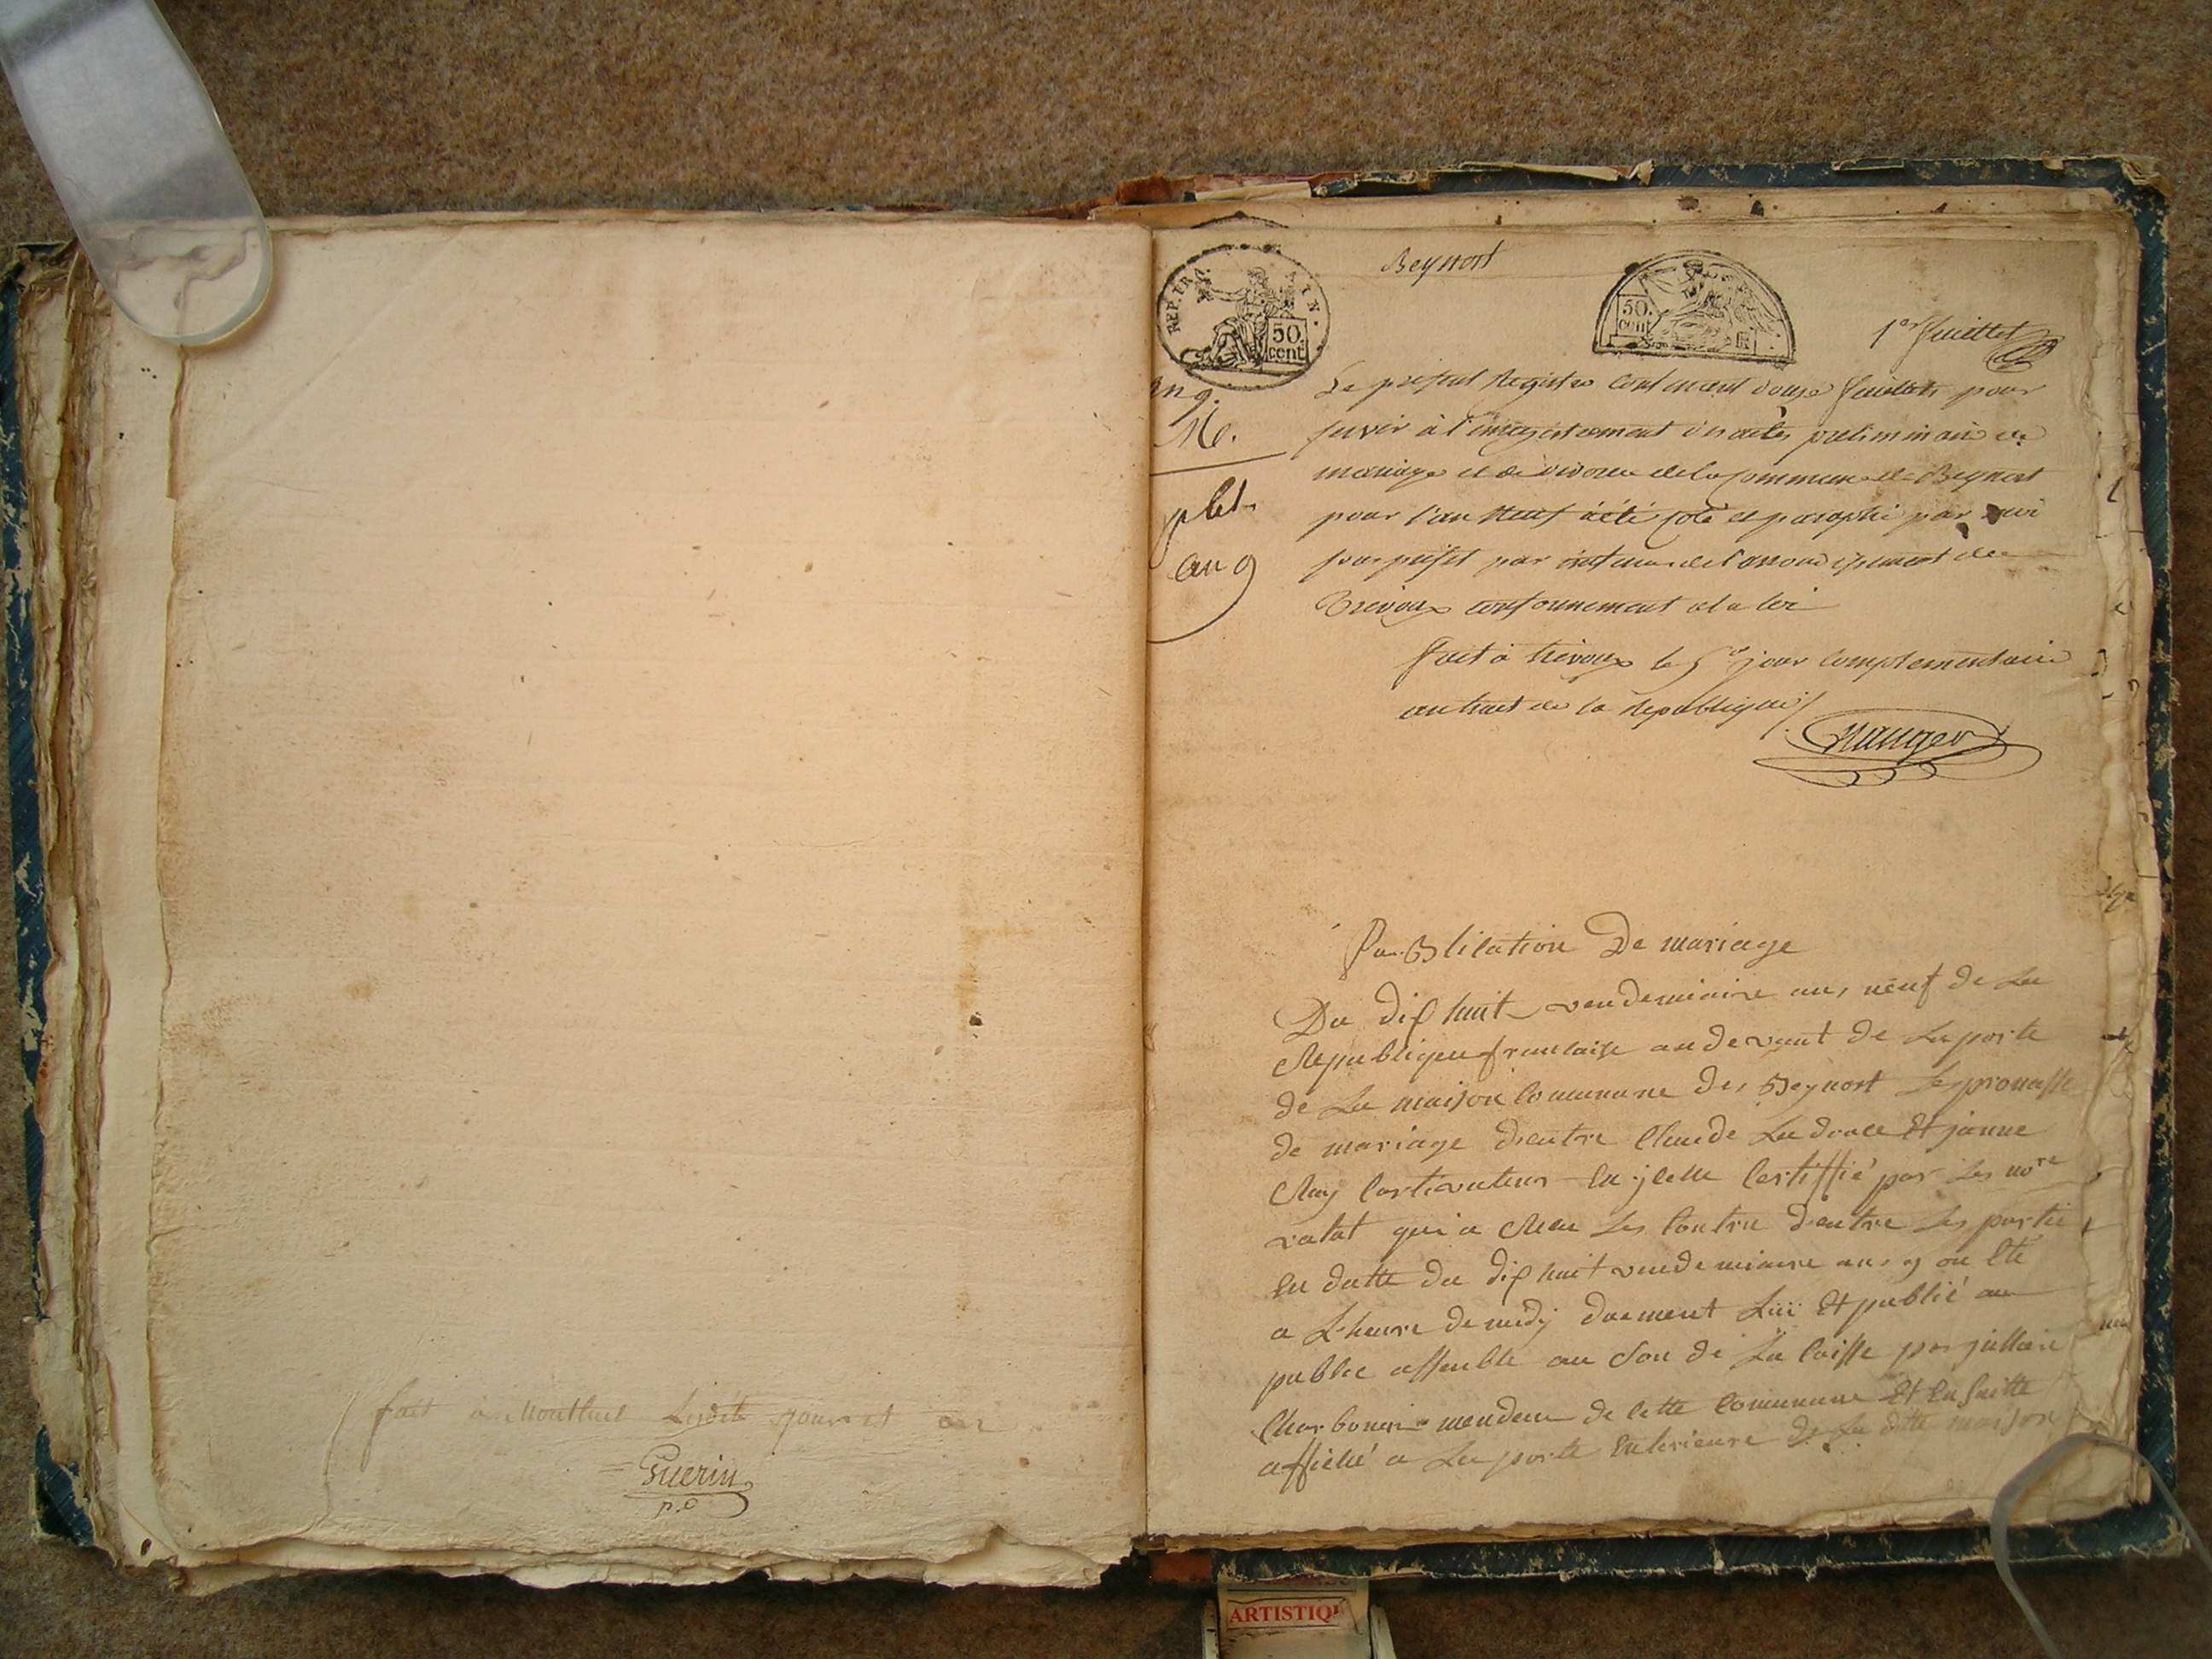 fait à Montluel Lesdits jour et an
Guerin
p.c
Beynost
REP. FRA
50. cent.
50. cent
1er feuillet
an 9.
16.
Le present Registre contenant douze feuillets pour
servir à l'enregistrement des actes preliminaire de
mariage et de divorce de la commune de Beynost
pour l'an Neuf à été coté et paraphé par moi
sous prefet par de l'arrondissement de
Trevoux conformement à la loi
fait à Trevoux le 5e jour complementaire
an huit de la Republique
an 9
Publication De mariage
Du dix huit vendemiaire an, neuf de La
Republique francaise au devant de La porte
de La maison Commune de, Beynost Les promesse
de mariage d'entre Claude et janne
Ray Certiffié par Les nore
ratat qui a Reçu Les d'entre Les partie
En datte du dix huit vendemiaire an, 9 on Eté
a L'heure de midÿ duement Luë Et publié au
public assemblé au Son de La Caisse par
de Cette Commune Et Ensuitte
affiché a La porte Exterieure de La ditte maison
ARTISTIQ